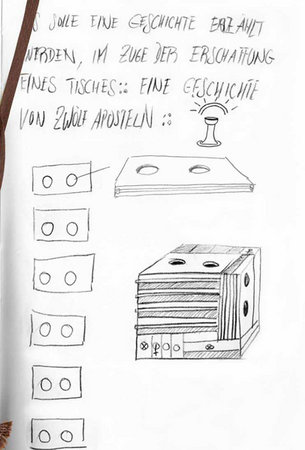 S SOLLE EINE GESCHICHTE ERZÄHLT
WERDEN, IM ZUGE DER ERSCHAFFUNG
EINES TISCHES:: EINE GESCHICHTE
VON ZWÖLF APOSTELN ::